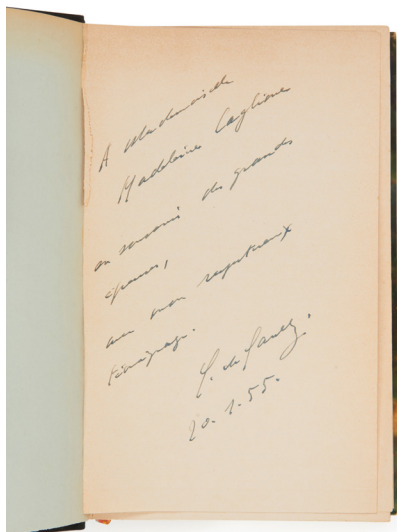 A Mademoiselle
Madeleine Caglione
en souvenir des grands
épreuves,
avec mon respectueux
témoignage.
C. de Gaulle.
20.1.55.